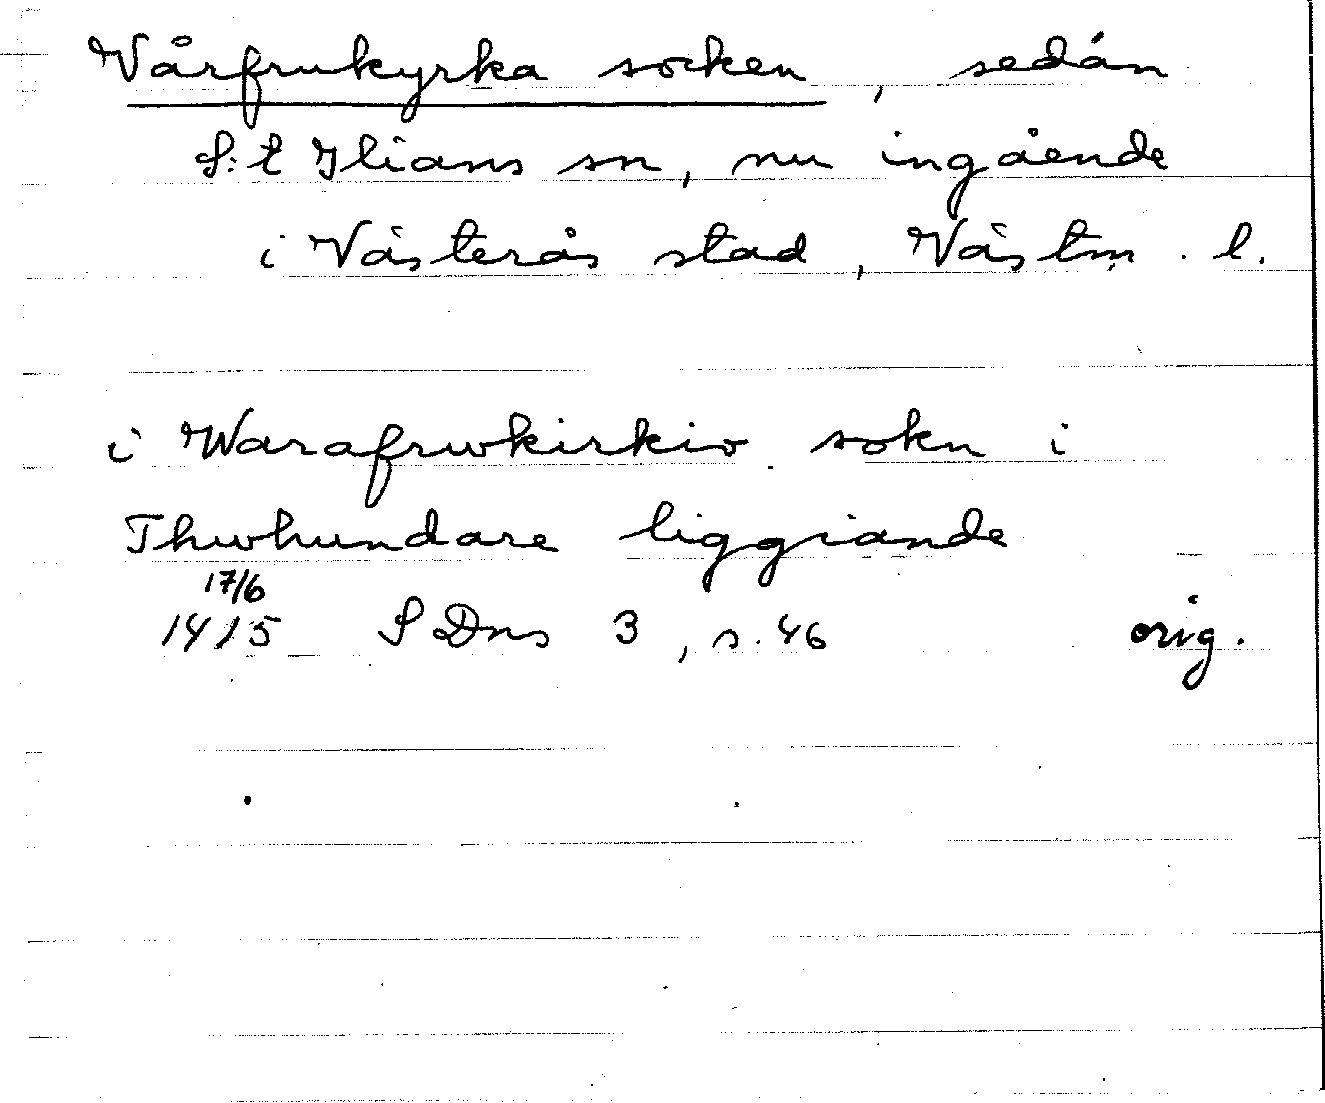 Vårfrukyrka socken, sedán
S:t Ilians sn, nu ingående
i Västerås stad, Västm. l.
i Warafrwkirkio sokn i
Thwhundare liggiande
17/6
1415 SDns 3, s. 46 orig.